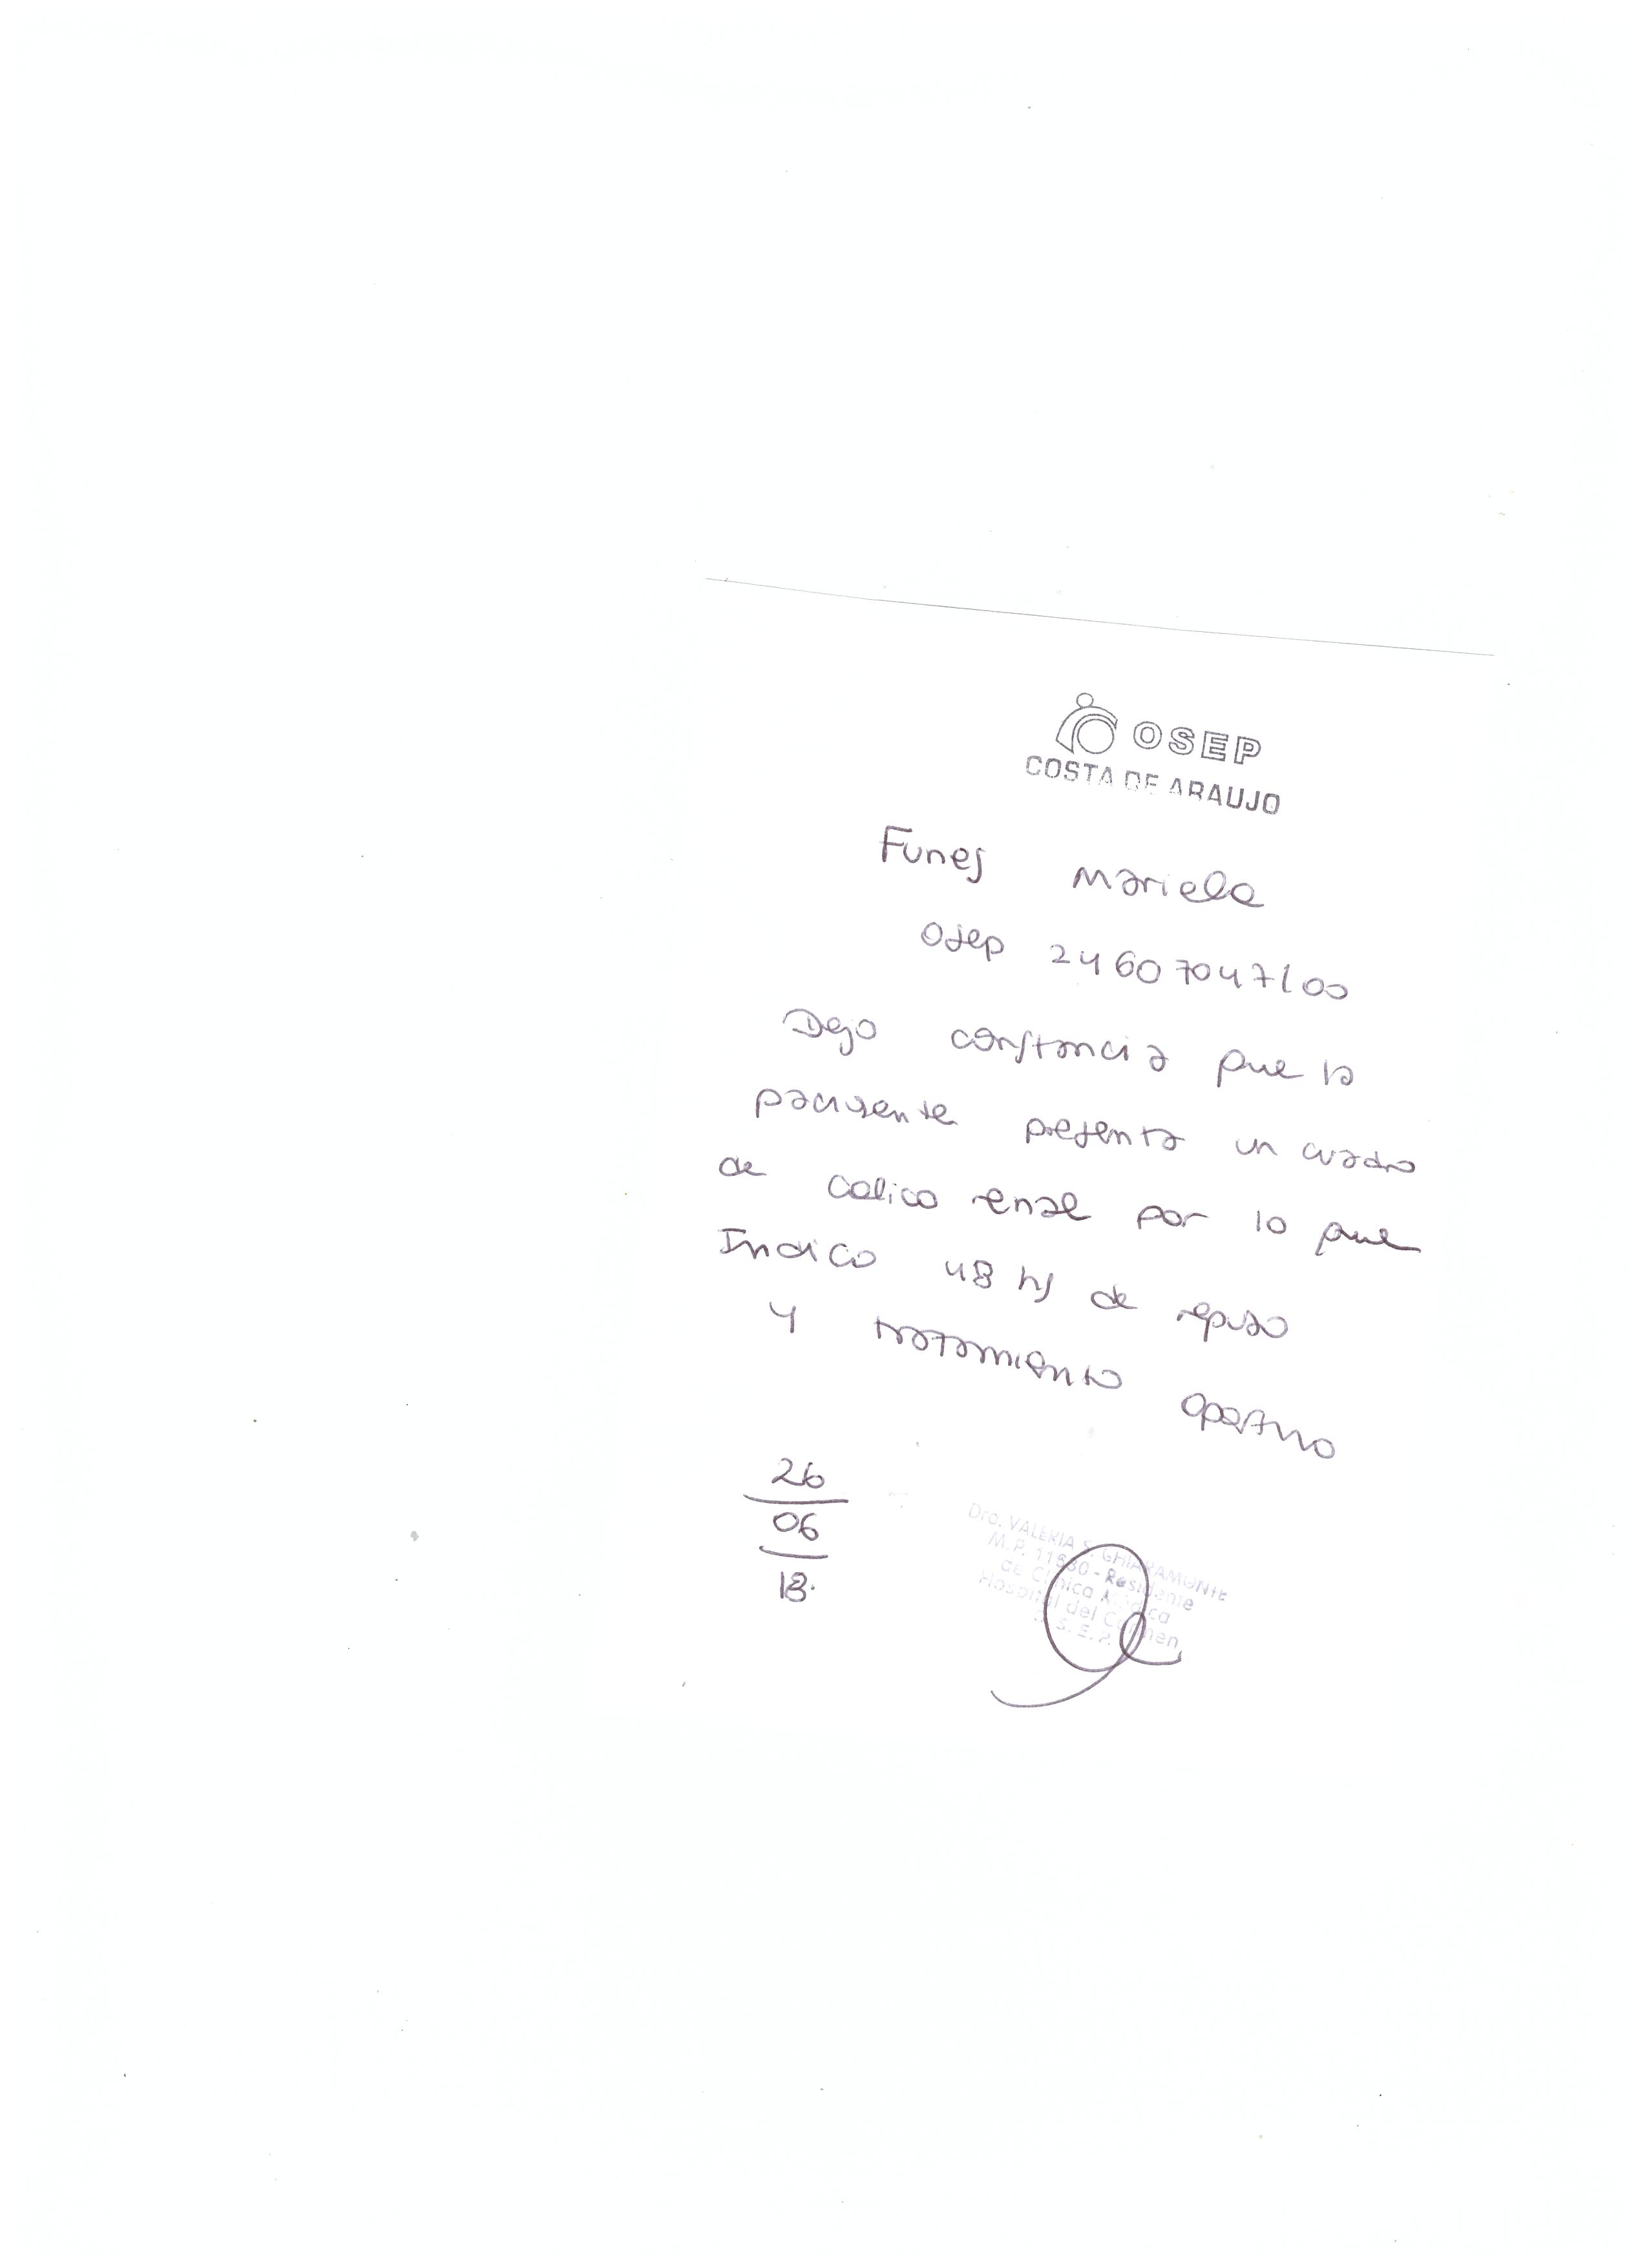 OSEP
COSTA DE ARAUJO
Funes Mariela
Osep 24607047/00
Dejo constancia que la
paciente presenta un cuadro
de colico renal por lo que
Indico 48 hs de reposo
y tratamiento oportuno
26
06
18.
Dra. VALERIA S. GHIARAMONTE
M.P. - Residente
de Clínica Médica
Hospital del Carmen
O.S.E.P.